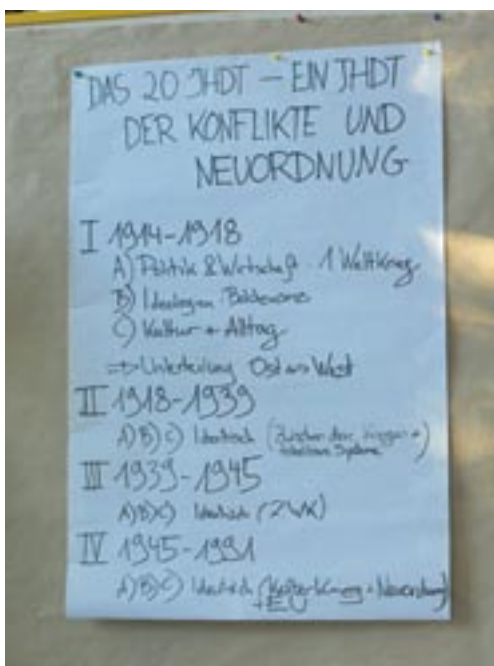 DAS 20 JHDT – EIN JHDT
DER KONFLIKTE UND
NEUORDNUNG
I 1914-1918
A) Politik & Wirtschaft 1 Weltkrieg
B) Ideologien
C) Kultur + Alltag
=> Unterteilung Ost West
II 1918-1939
A) B) C) Identisch (Zwischen den Kriegen +
Systeme)
III 1939-1945
A) B) C) Identisch (2 WK)
IV 1945-1991
A) B) C) Identisch (Kalter Krieg + Neuordnung)